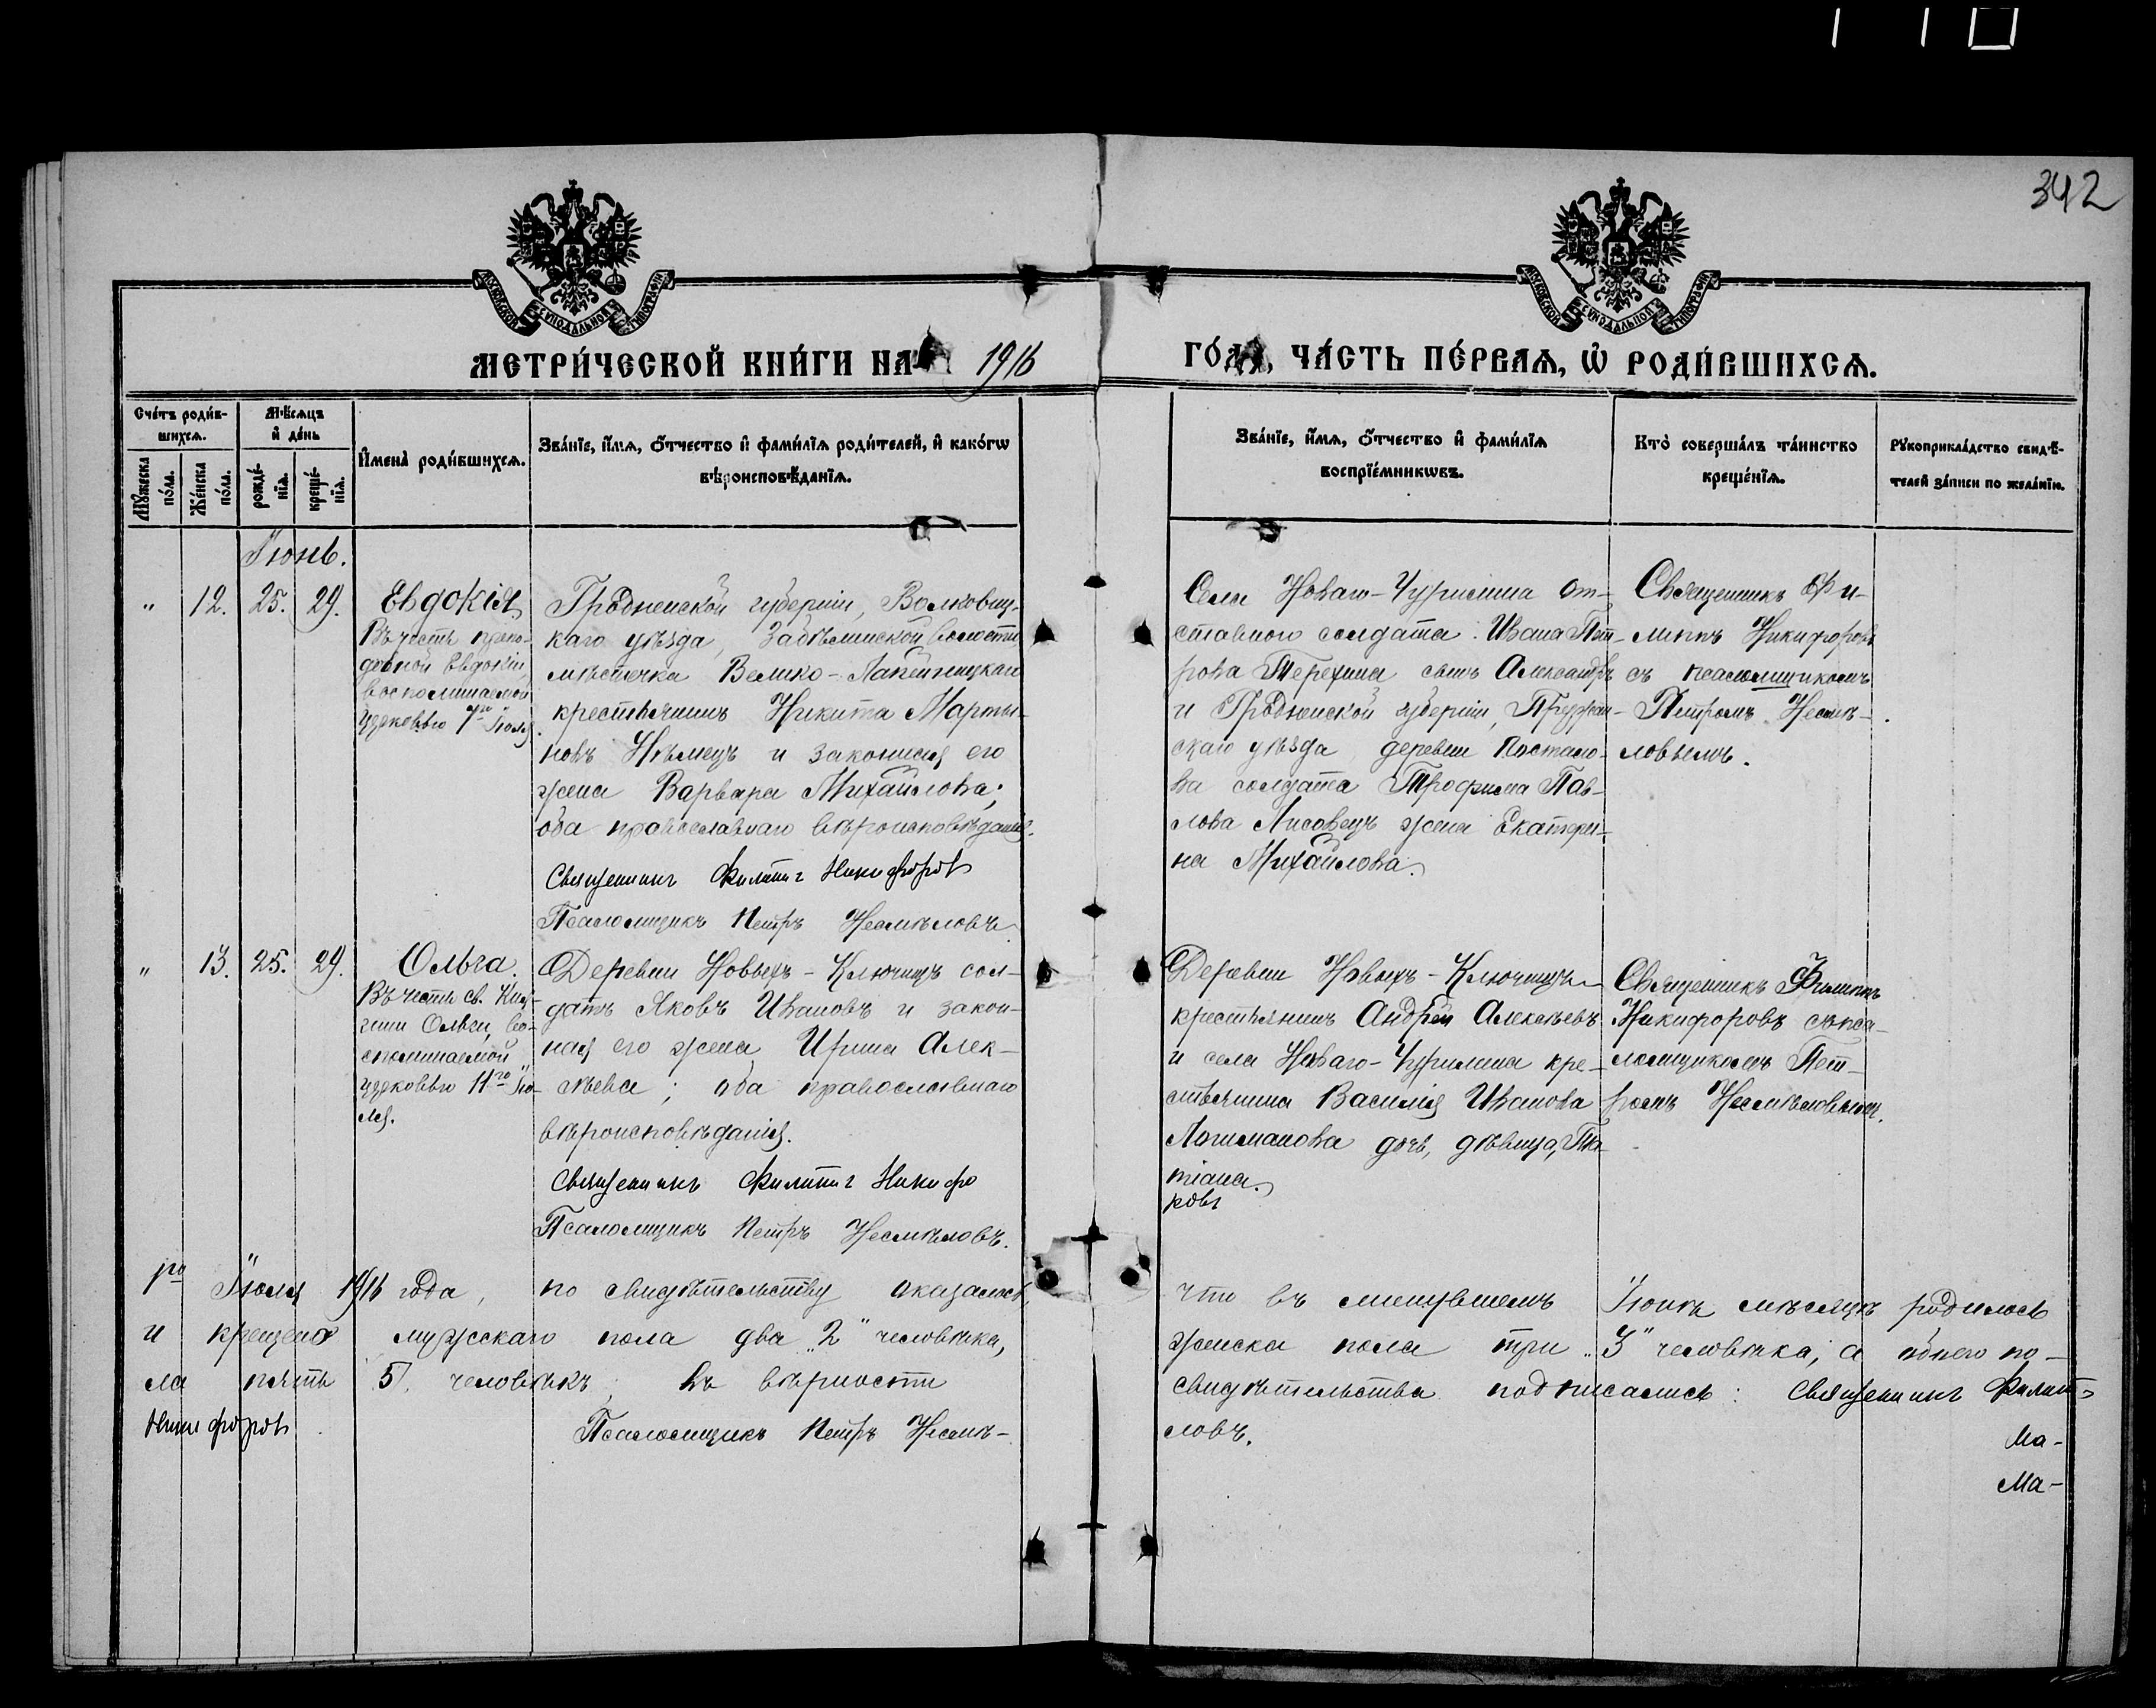 342
МОСКОВСКОЙ СѴНОДАЛЬНОЙ ТИПОГРАФІИ
МОСКОВСКОЙ СѴНОДАЛЬНОЙ ТИПОГРАФІИ
МЕТРИ́ЧЕСКОЙ КНИ́ГИ НА 1916
ГО́ДЪ, ЧА́СТЬ ПЕ́РВАѦ, Ѽ РОДИ́ВШИХСѦ.
Сче́тъ роди́в-
шихсѧ.
Мꙋ́жеска по́ла.
Же́нска по́ла.
Мѣ́сѧцъ и҆ де́нь
рожде́-
нїѧ.
креще́-
нїѧ.
И҆мена̀ роди́вшихсѧ.
Зва́нїе, и҆́мѧ, ѻ҆́тчество и҆ фами́лїѧ роди́телей, и҆ како́гѡ
вѣроисповѣ́данїѧ.
Зва́нїе, и҆́мѧ, ѻ҆́тчество и҆ фами́лїѧ
воспрїе́мникѡвъ.
Кто̀ соверша́лъ та́инство
креще́нїѧ.
Рꙋкоприкла́дство свидѣ́-
телей за́писи по жела́нїю.
Іюнь.
" 12. 25. 29.
Евдокія
Въ честь препо-
добной Евдокіи,
воспоминаемой
церковью 7го Іюля.
Гродненской губерніи, Волковыс-
каго уѣзда, волости,
мѣстечка Велико-Лапеницкаго
крестьянинъ Никита Марты-
новъ Нѣмецъ и законная его
жена Варвара Михайлова;
оба православнаго вѣроисповѣданія.
Священникъ Филиппъ Никифоровъ
Псаломщикъ Петръ Несмѣловъ.
Села Новаго-Чурилина от-
ставного солдата Ивана Пет-
рова Терехина сынъ Александръ
и Гродненской губерніи, Пружан-
скаго уѣзда деревни
солдата Трофима Пав-
лова Лисовецъ жена Екатери-
на Михайлова.
Священникъ Фи-
липпъ Никифоровъ
съ псаломщикомъ
Петромъ Несмѣ-
ловымъ.
" 13. 25. 29.
Ольга.
Въ честь св. Кня-
гини Ольги, во-
споминаемой
церковью 11го Ію-
ля.
Деревни Новыхъ-Ключищъ сол-
датъ Яковъ Ивановъ и закон-
ная его жена Ирина Алек-
сѣева; оба православнаго
вѣроисповѣданія.
Священникъ Филиппъ Никифо
Псаломщикъ Петръ Несмѣловъ.
Деревни Новыхъ-Ключищъ
крестьянинъ Андрей Алексѣевъ
и села Новаго-Чурилина кре-
стьянина Василія Иванова
дочь, дѣвица, Та-
тіана.
ровъ
Священникъ Филиппъ
Никифоровъ съ пса-
ломщикомъ Пет-
ромъ Несмѣловымъ.
1го Іюля 1916 года, по свидѣтельству оказалось,
что въ минувшемъ Іюнѣ мѣсяцѣ родилось
и крещено мужскаго пола два „2" человѣка,
женска пола три „3" человѣка; а обоего по-
ла пять 5. человѣкъ; въ вѣрности
свидѣтельства подписались: Священникъ Филиппъ
Никифоровъ
Псаломщикъ Петръ Несмѣ-
ловъ.
Ма-
Ма-